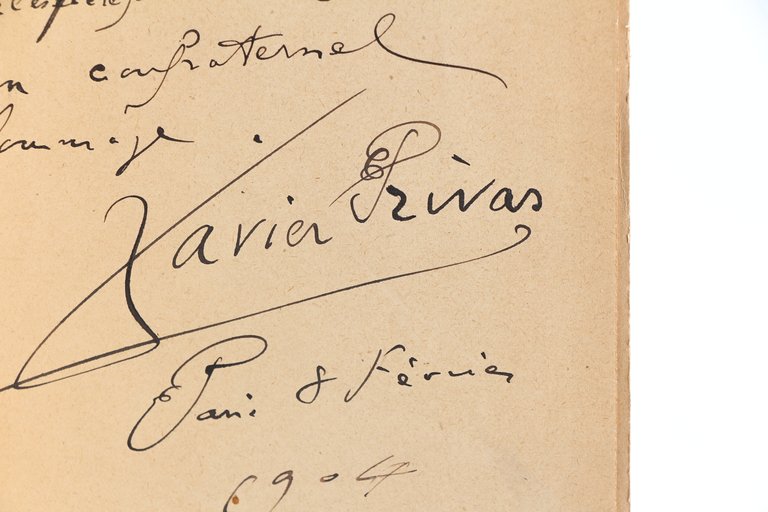 confraternel
hommage.
Xavier Privas
Paris 8 Février
1904